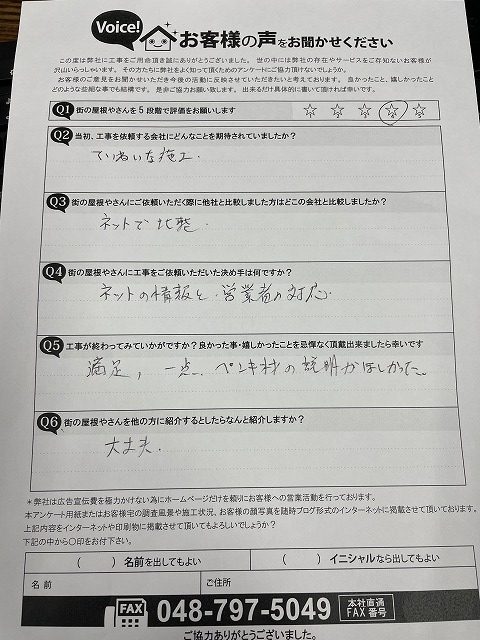 Voice!
お客様の声をお聞かせください
この度は弊社に工事をご用命頂き誠にありがとうございます。世の中には弊社の存在やサービスをご存知ないお客様が
沢山いらっしゃいます。その方たちに弊社をよく知って頂くためのアンケートにご協力頂けないでしょうか。
お客様のご意見をお聞かせいただき今後の活動に反映させていただきたいと考えております。良かったこと、嬉しかったこと
どのような些細な事でも結構です。是非ご協力お願い致します。出来るだけ具体的に書いて頂ければ幸いです。
Q1 街の屋根やさんを5段階で評価をお願いします ☆ ☆ ☆ ☆ ☆
Q2 当初、工事を依頼する会社にどんなことを期待されていましたか?
ていねいな施工.
Q3 街の屋根やさんにご依頼いただく際に他社と比較しました方はどこの会社と比較しましたか?
ネットで比較.
Q4 街の屋根やさんに工事をご依頼いただいた決め手は何ですか?
ネットの情報と、営業者の対応.
Q5 工事が終わってみていかがですか?良かった事・嬉しかったことを忌憚なく頂戴出来ましたら幸いです
満足, 一点、ペンキ材の説明がほしかった。
Q6 街の屋根やさんを他の方に紹介するとしたらなんと紹介しますか?
大丈夫.
*弊社は広告宣伝費を極力かけない為にホームページだけを頼りにお客様への営業活動を行っております。
本アンケート用紙またはお客様宅の調査風景や施工状況、お客様の顔写真を随時ブログ形式のインターネットに掲載させて頂いております。
上記内容をインターネットや印刷物に掲載させて頂いてもよろしいでしょうか?
下記の中から○印をお付下さい。
( )名前を出してもよい ( )イニシャルなら出してもよい
名前 ご住所
FAX 048-797-5049 本社直通 FAX番号
ご協力ありがとうございました。